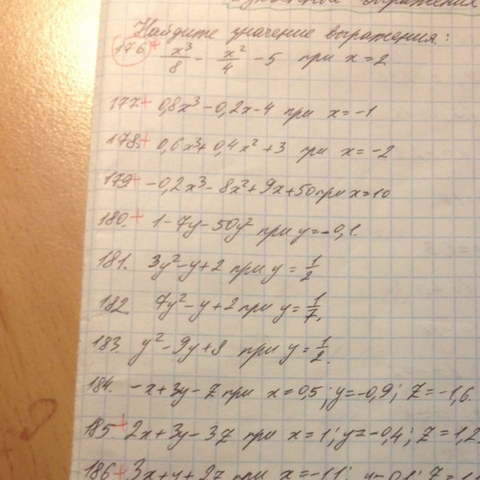 выражения
Найдите значение выражения:
176+ x³/8 - x²/4 - 5 при x=2
177+ 0,8x³ - 0,2x - 4 при x=-1
178+ 0,6x³+0,4x²+3 при x=-2
179+ -0,2x³-8x²+9x+50 при x=10
180.+ 1-7y-50y² при y=-0,1.
181. 3y²-y+2 при y=1/2
182 7y²-y+2 при y=1/7.
183. y²-9y+8 при y=1/2.
184. -x+3y-z при x=0,5; y=-0,9; z=-1,6.
185+ 2x+3y-3z при x=1; y=-0,4; z=1,2
186+ 3x+y+2z при x=-1,1;